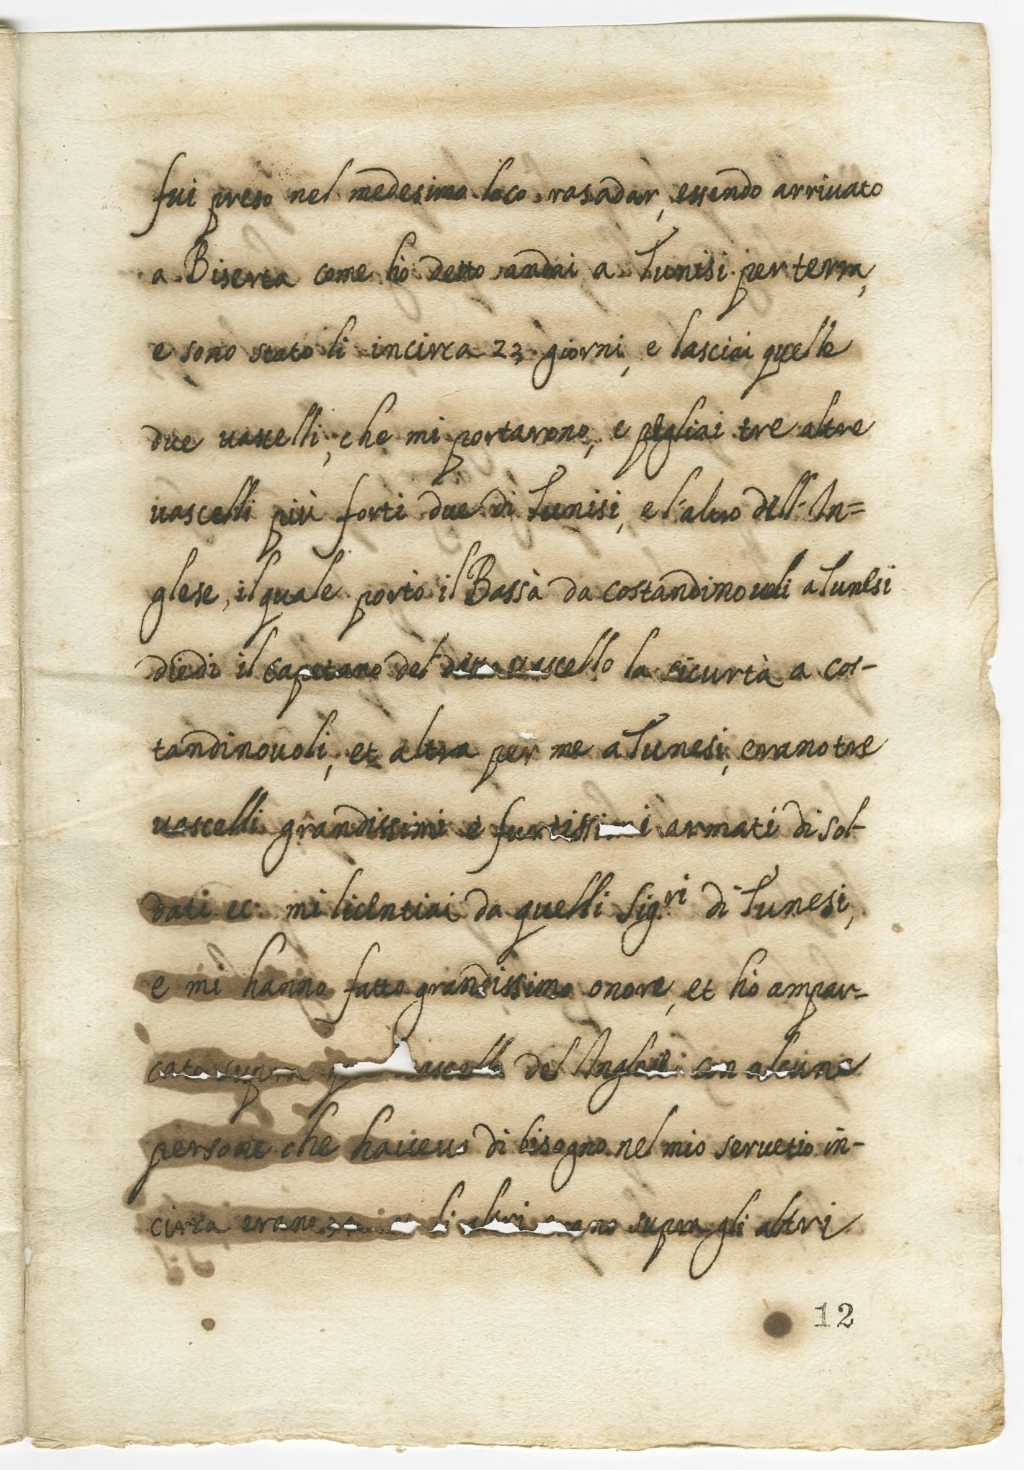 fui preso nel medesimo loco rasadàr, essendo arriuato
a Biserta come hò detto andai a Tunisi per terra,
e sono stato li incirca 23 giorni, e lasciai quelle
due uascelli, che mi portarono, e pegliai tre altre
uascelli più forti due di Tunisi, e l'altro dell'In=
glese, il quale portò il Bassà da costandinouoli a Tunesi
diedi il capetano del detto uascello la sicurtà a cos-
tandinouoli, et altra per me a Tunesi, erano tre
uascelli grandissimi e furtissimi armati di sol-
dati ec: mi licentiai da quelli Sigri di Tunesi,
e mi hanno fatto grandissimo onore, et hò ampar-
cato supra uascello del Inglese con alcune
persone che haueuo di bisogno nel mio seruetio in-
circa erano li altri erano supra gli altri
12